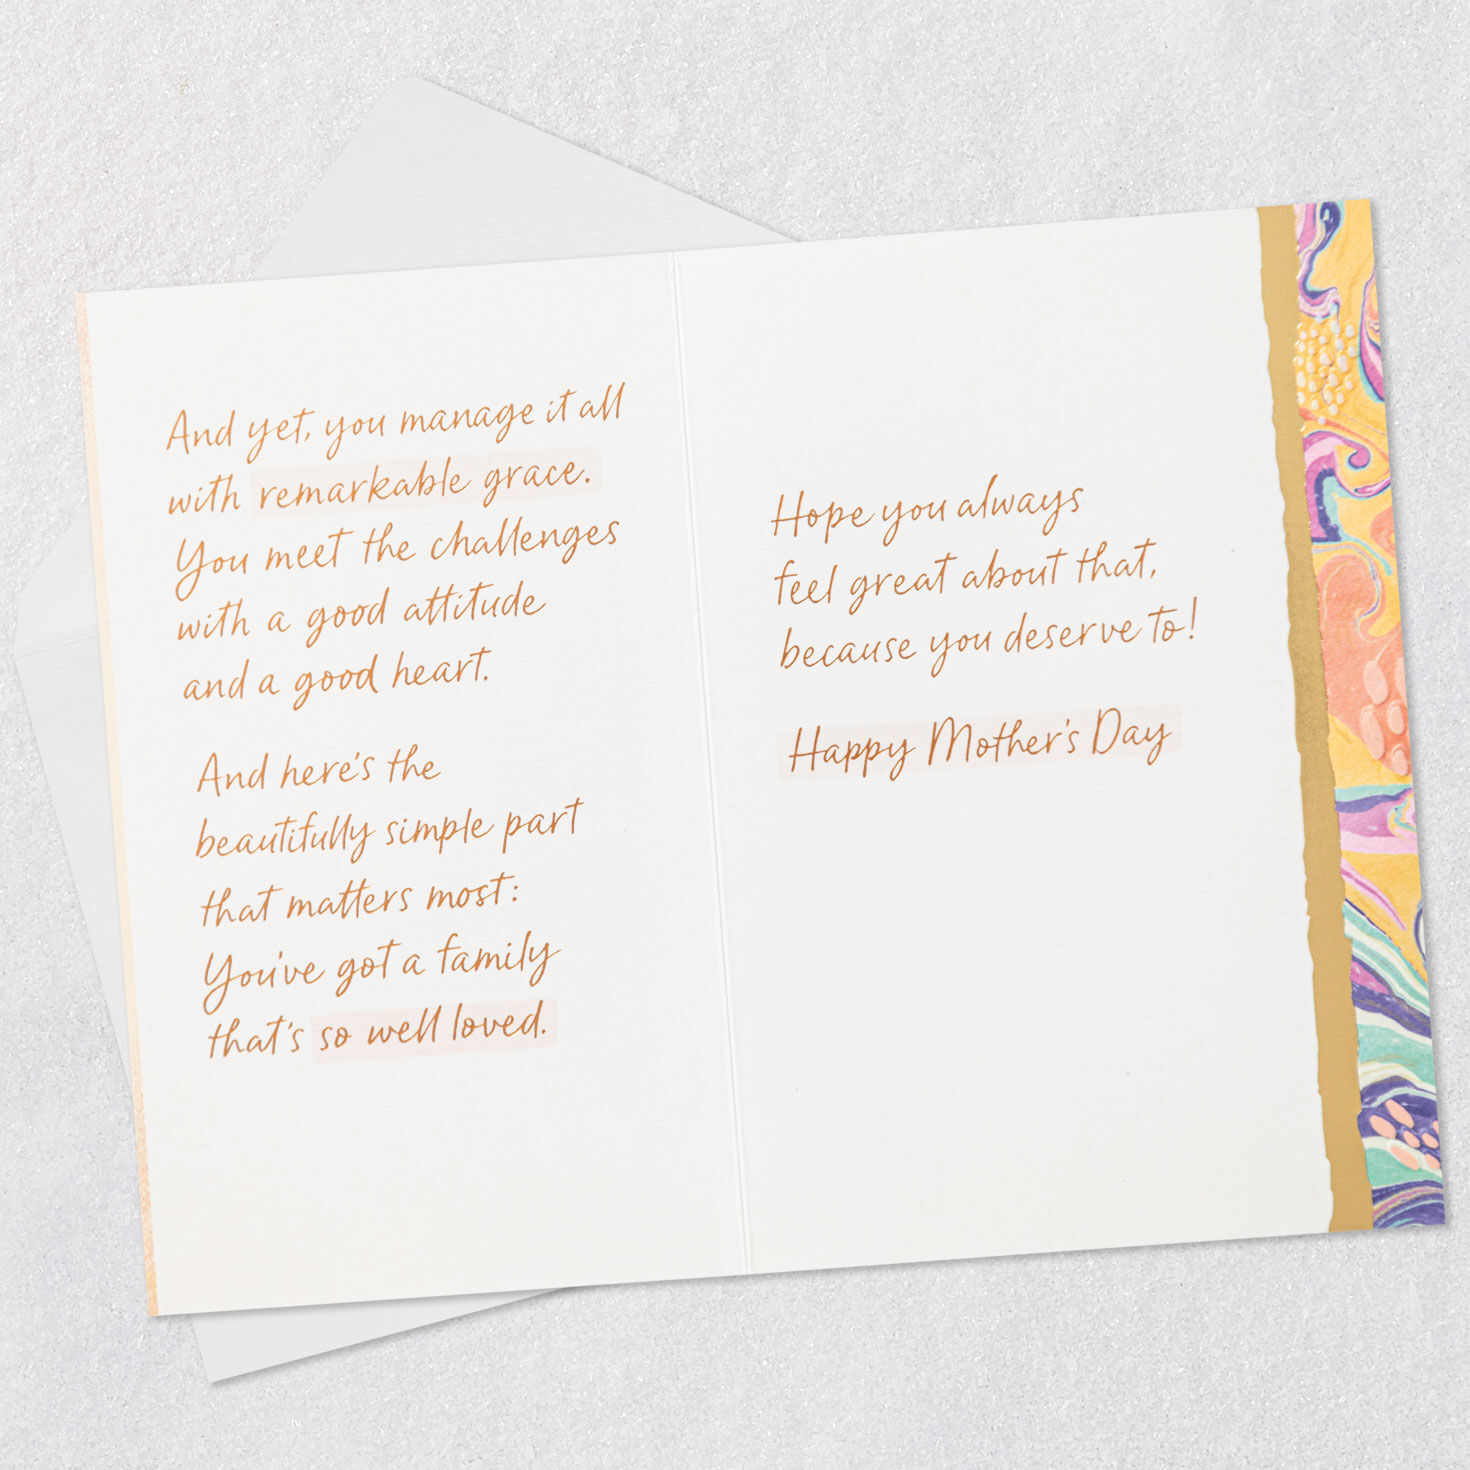 And yet, you manage it all
with remarkable grace.
You meet the challenges
with a good attitude
and a good heart.
And here's the
beautifully simple part
that matters most:
You've got a family
that's so well loved.
Hope you always
feel great about that,
because you deserve to!
Happy Mother's Day